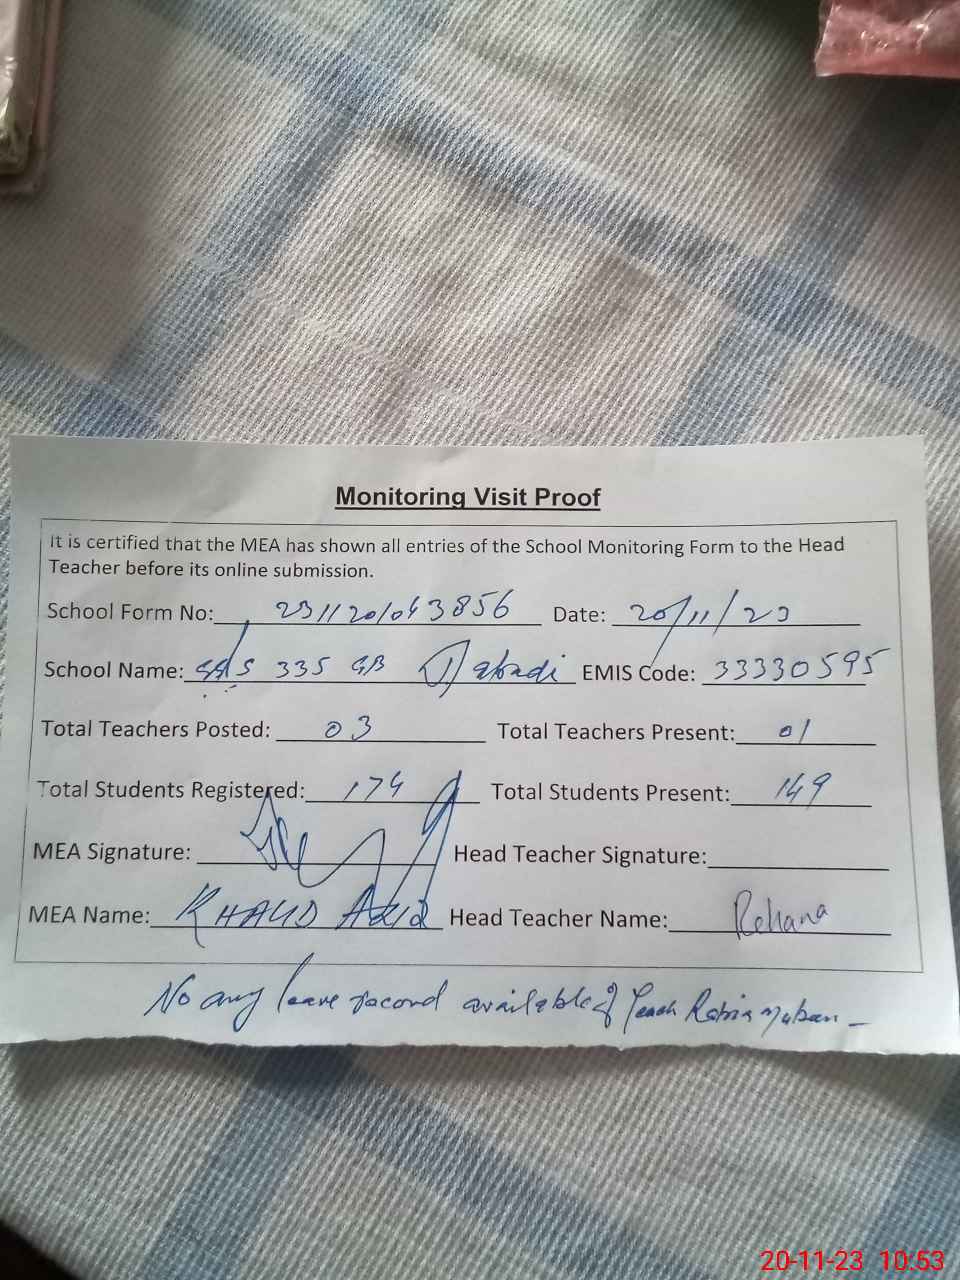 Monitoring Visit Proof
It is certified that the MEA has shown all entries of the School Monitoring Form to the Head
Teacher before its online submission.
School Form No: 231120/043856 Date: 20/11/23
School Name: 335 GB abadi EMIS Code: 33330595
Total Teachers Posted: 03 Total Teachers Present: 01
Total Students Registered: 174 Total Students Present: 149
MEA Signature: Head Teacher Signature:
MEA Name: KHALID AZIZ Head Teacher Name: Rehana
No any leave record available of Teach Rabia
20-11-23 10:53